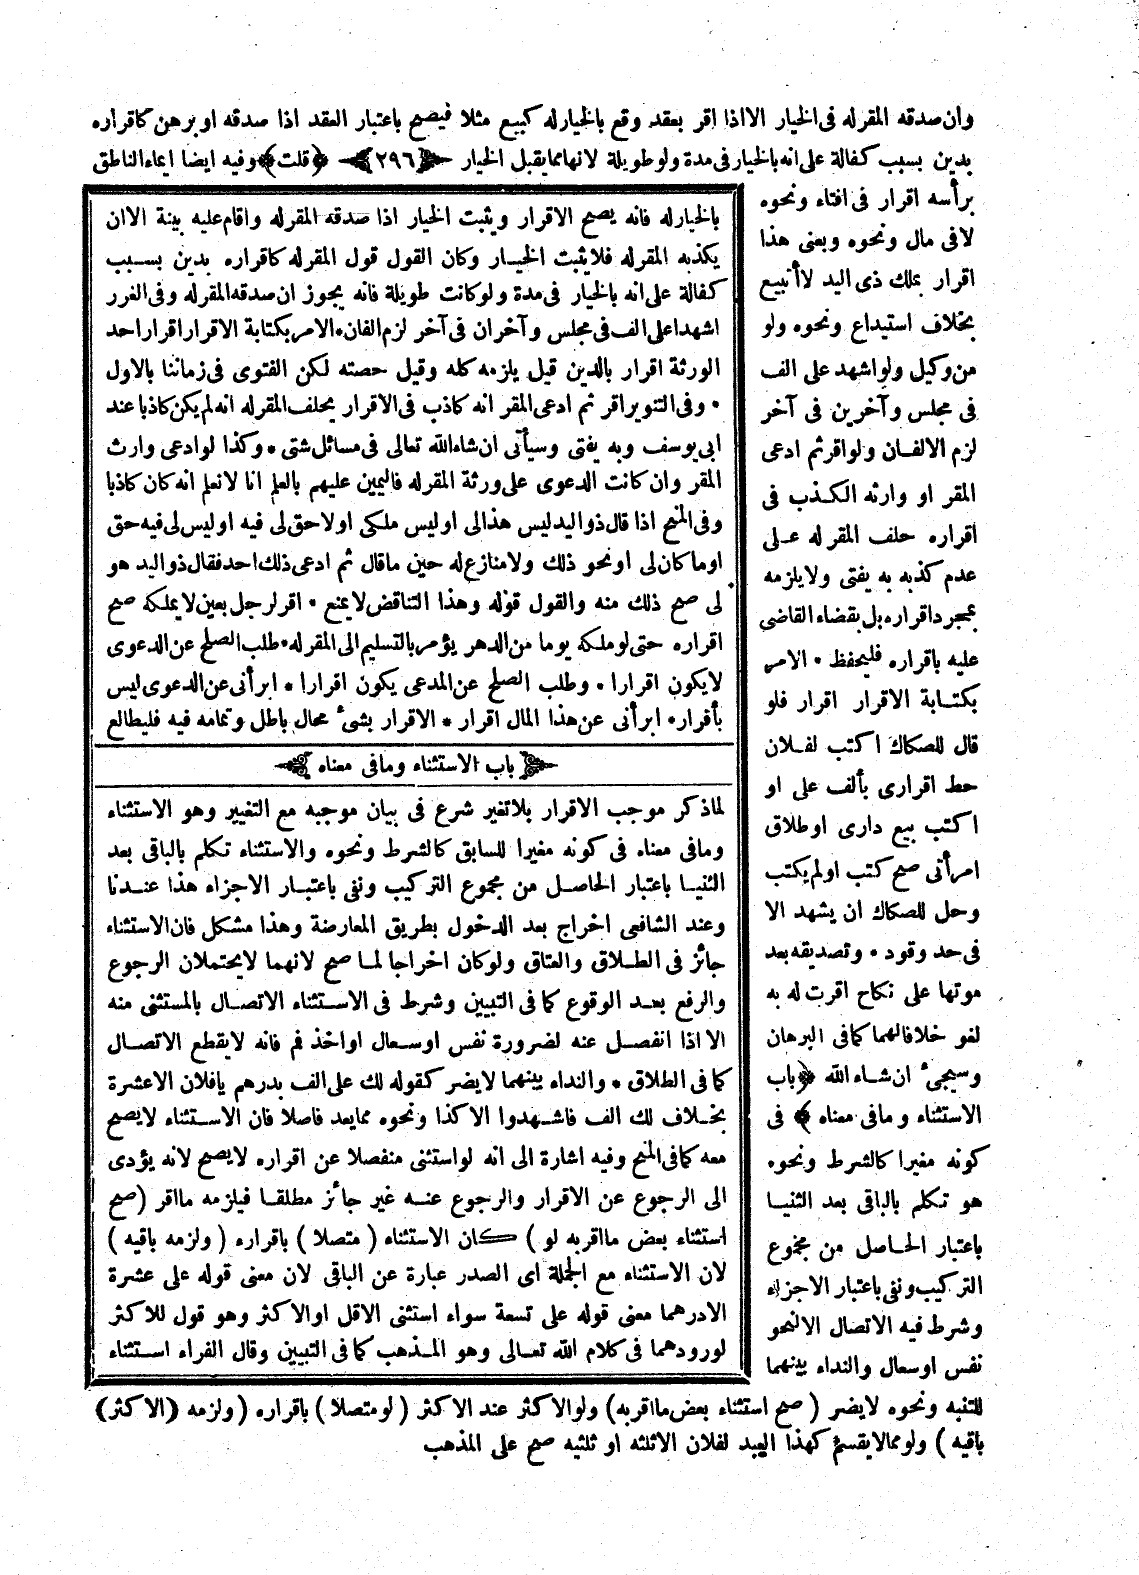 وان صدقه المقرله فى الخيار الااذا اقر بعقد وقع بالخيارله كبيع مثلا فيصح باعتبار العقد اذا صدقه اوبرهن كاقراره
بدين بسبب كفالة على انه بالخيار فى مدة ولو طويلة لانهامما يقبل الخيار ﴿٢٩٦﴾ ﴿قلت﴾ وفيه ايضا ايماء الناطق
برأسه اقرار فى افتاء ونحوه
لافى مال ونحوه وبعنى هذا
اقرار بملك ذى اليد لاأتبيع
بخلاف استيداع ونحوه ولو
من وكيل ولواشهد على الف
فى مجلس وآخرين فى آخر
لزم الالفان ولواقرثم ادعى
المقر او وارثه الكذب فى
اقراره حلف المقر له على
عدم كذبه به يفتى ولايلزمه
بمجرد اقراره بل بقضاء القاضى
عليه باقراره فليحفظ • الامر
بكتابة الاقرار اقرار فلو
قال للصكاك اكتب لفلان
خط اقرارى بألف على او
اكتب بيع دارى اوطلاق
امرأتى صح كتب اولم يكتب
وحل للصكاك ان يشهد الا
فى حد وقود • وتصديقه بعد
موتها على نكاح اقرت له به
لغو خلافالهما كمافى البرهان
وسيجئ ان شاء الله ﴿باب
الاستثناء ومافى معناه﴾ فى
كونه مغيرا كالشرط ونحوه
هو تكلم بالباقى بعد الثنيا
باعتبار الحاصل من مجموع
التركيب ونفى باعتبار الاجزاء
وشرط فيه الاتصال الالنحو
نفس اوسعال والنداء بينهما
للتنبه ونحوه لايضر ( صح استثناء بعض مااقربه) ولوالاكثر عند الاكثر ( لومتصلا ) باقراره ( ولزمه (الاكثر)
باقيه ) ولومما لايقسم كهذا العبد لفلان الاثلثه او ثلثيه صح على المذهب
بالخيارله فانه يصح الاقرار ويثبت الخيار اذا صدقه المقرله واقام عليه بينة الاان
يكذبه المقرله فلايثبت الخيار وكان القول قول المقرله كاقراره بدين بسبب
كفالة على انه بالخيار فى مدة ولوكانت طويلة فانه يجوز ان صدقه المقرله وفى الغرر
اشهدا على الف فى مجلس وآخران فى آخر لزم الفان • الامر بكتابة الاقرار اقرار احد
الورثة اقرار بالدين قيل يلزمه كله وقيل حصته لكن الفتوى فى زماننا بالاول
• وفى التنوير اقر ثم ادعى المقر انه كاذب فى الاقرار يحلف المقرله انه لم يكن كاذبا عند
ابى يوسف وبه يفتى وسيأتى ان شاءالله تعالى فى مسائل شتى • وكذا لوادعى وارث
المقر وان كانت الدعوى على ورثة المقرله فاليمين عليهم بالعلم انا لانعلم انه كان كاذبا
وفى المنح اذا قال ذواليد ليس هذالى اوليس ملكى اولاحق لى فيه اوليس لى فيه حق
اوما كان لى اونحو ذلك ولامنازع له حين ماقال ثم ادعى ذلك احد فقال ذواليد هو
لى صح ذلك منه والقول قوله وهذا التناقض لايمنع • اقرلرجل بعين لايملكه صح
اقراره حتى لوملكه يوما من الدهر يؤمر بالتسليم الى المقرله • طلب الصلح عن الدعوى
لايكون اقرارا • وطلب الصلح عن المدعى يكون اقرارا • ابرأنى عن الدعوى ليس
بأقرار • ابرأنى عن هذا المال اقرار • الاقرار بشئ محال باطل وتمامه فيه فليطالع
﴿باب الاستثناء ومافى معناه﴾
لماذكر موجب الاقرار بلاتغير شرع فى بيان موجبه مع التغيير وهو الاستثناء
ومافى معناه فى كونه مغيرا للسابق كالشرط ونحوه والاستثناء تكلم بالباقى بعد
الثنيا باعتبار الحاصل من مجموع التركيب ونفى باعتبار الاجزاء هذا عندنا
وعند الشافعى اخراج بعد الدخول بطريق المعارضة وهذا مشكل فان الاستثناء
جائز فى الطلاق والعتاق ولوكان اخراجا لما صح لانهما لايحتملان الرجوع
والرفع بعد الوقوع كمافى التبيين وشرط فى الاستثناء الاتصال بالمستثنى منه
الا اذا انفصل عنه لضرورة نفس اوسعال اواخذ فم فانه لايقطع الاتصال
كمافى الطلاق • والنداء بينهما لايضر كقوله لك على الف درهم يافلان الاعشرة
بخلاف لك الف فاشهدوا الاكذا ونحوه ممايعد فاصلا فان الاستثناء لايصح
معه كمافى المنح وفيه اشارة الى انه لواستثنى منفصلا عن اقراره لايصح لانه يؤدى
الى الرجوع عن الاقرار والرجوع عنه غير جائز مطلقا فيلزمه مااقر (صح
استثناء بعض مااقربه لو ) كان الاستثناء ( متصلا ) باقراره ( ولزمه باقيه )
لان الاستثناء مع الجملة اى الصدر عبارة عن الباقى لان معنى قوله على عشرة
الادرهما معنى قوله على تسعة سواء استثنى الاقل اوالاكثر وهو قول للاكثر
لورودهما فى كلام الله تعالى وهو المذهب كمافى التبيين وقال الفراء استثناء